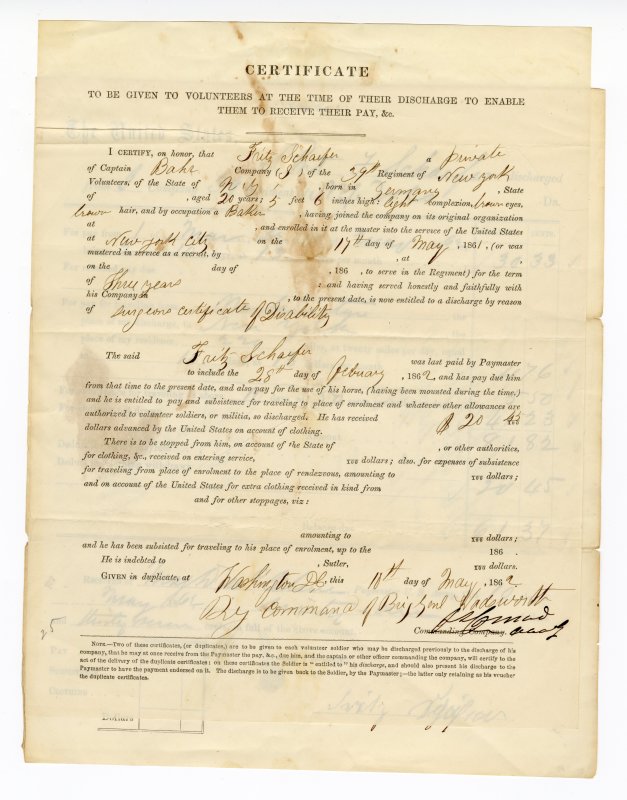 CERTIFICATE
TO BE GIVEN TO VOLUNTEERS AT THE TIME OF THEIR DISCHARGE TO ENABLE
THEM TO RECEIVE THEIR PAY, &c.
I CERTIFY, on honor, that Fritz Schaefer a private
of Captain Bahr Company ( ) of the 39th Regiment of New York
Volunteers, of the State of N.Y. , born in Germany , State
of , aged 20 years; 5 feet 6 inches high; light complexion, brown eyes,
brown hair, and by occupation a Baker , having joined the company on its original organization
at , and enrolled in it at the muster into the service of the United States
at New York City on the 17th day of May , 1861, (or was
mustered in service as a recruit, by , at .
on the day of , 186 , to serve in the Regiment) for the term
of Three years : and having served honestly and faithfully with
his Company in , to the present date, is now entitled to a discharge by reason
of surgeons certificate of Disability
The said Fritz Schaefer was last paid by Paymaster
to include the 28th day of , 1862 and has pay due him
from that time to the present date, and also pay for the use of his horse, (having been mounted during the time.)
and he is entitled to pay and subsistence for traveling to place of enrolment and whatever other allowances are
authorized to volunteer soldiers, or militia, so discharged. He has received $ 20 45/100
dollars advanced by the United States on account of clothing.
There is to be stopped from him, on account of the State of , or other authorities,
for clothing, &c., received on entering service, /100 dollars; also, for expenses of subsistence
for traveling from place of enrolment to the place of rendezvous, amounting to /100 dollars;
and on account of the United States for extra clothing received in kind from
and for other stoppages, viz:
amounting to /100 dollars;
and he has been subsisted for traveling to his place of enrolment, up to the 186 .
He is indebted to , Sutler, /100 dollars.
GIVEN in duplicate, at Washington D.C. this 10th day of May , 1862
By command of Brig Genl Wadsworth
Commanding Company.
25
NOTE.—Two of these certificates, (or duplicates,) are to be given to each volunteer soldier who may be discharged previously to the discharge of his
company, that he may at once receive from the Paymaster the pay, &c., due him, and the captain or other officer commanding the company, will certify to the
act of delivery of the duplicate certificates: on these certificates the Soldier is "entitled to" his discharge, and should also present his discharge to the
Paymaster to have the payment endorsed on it. The discharge is to be given back to the Soldier, by the Paymaster;—the latter only retaining as his voucher
the duplicate certificates.
Dollars